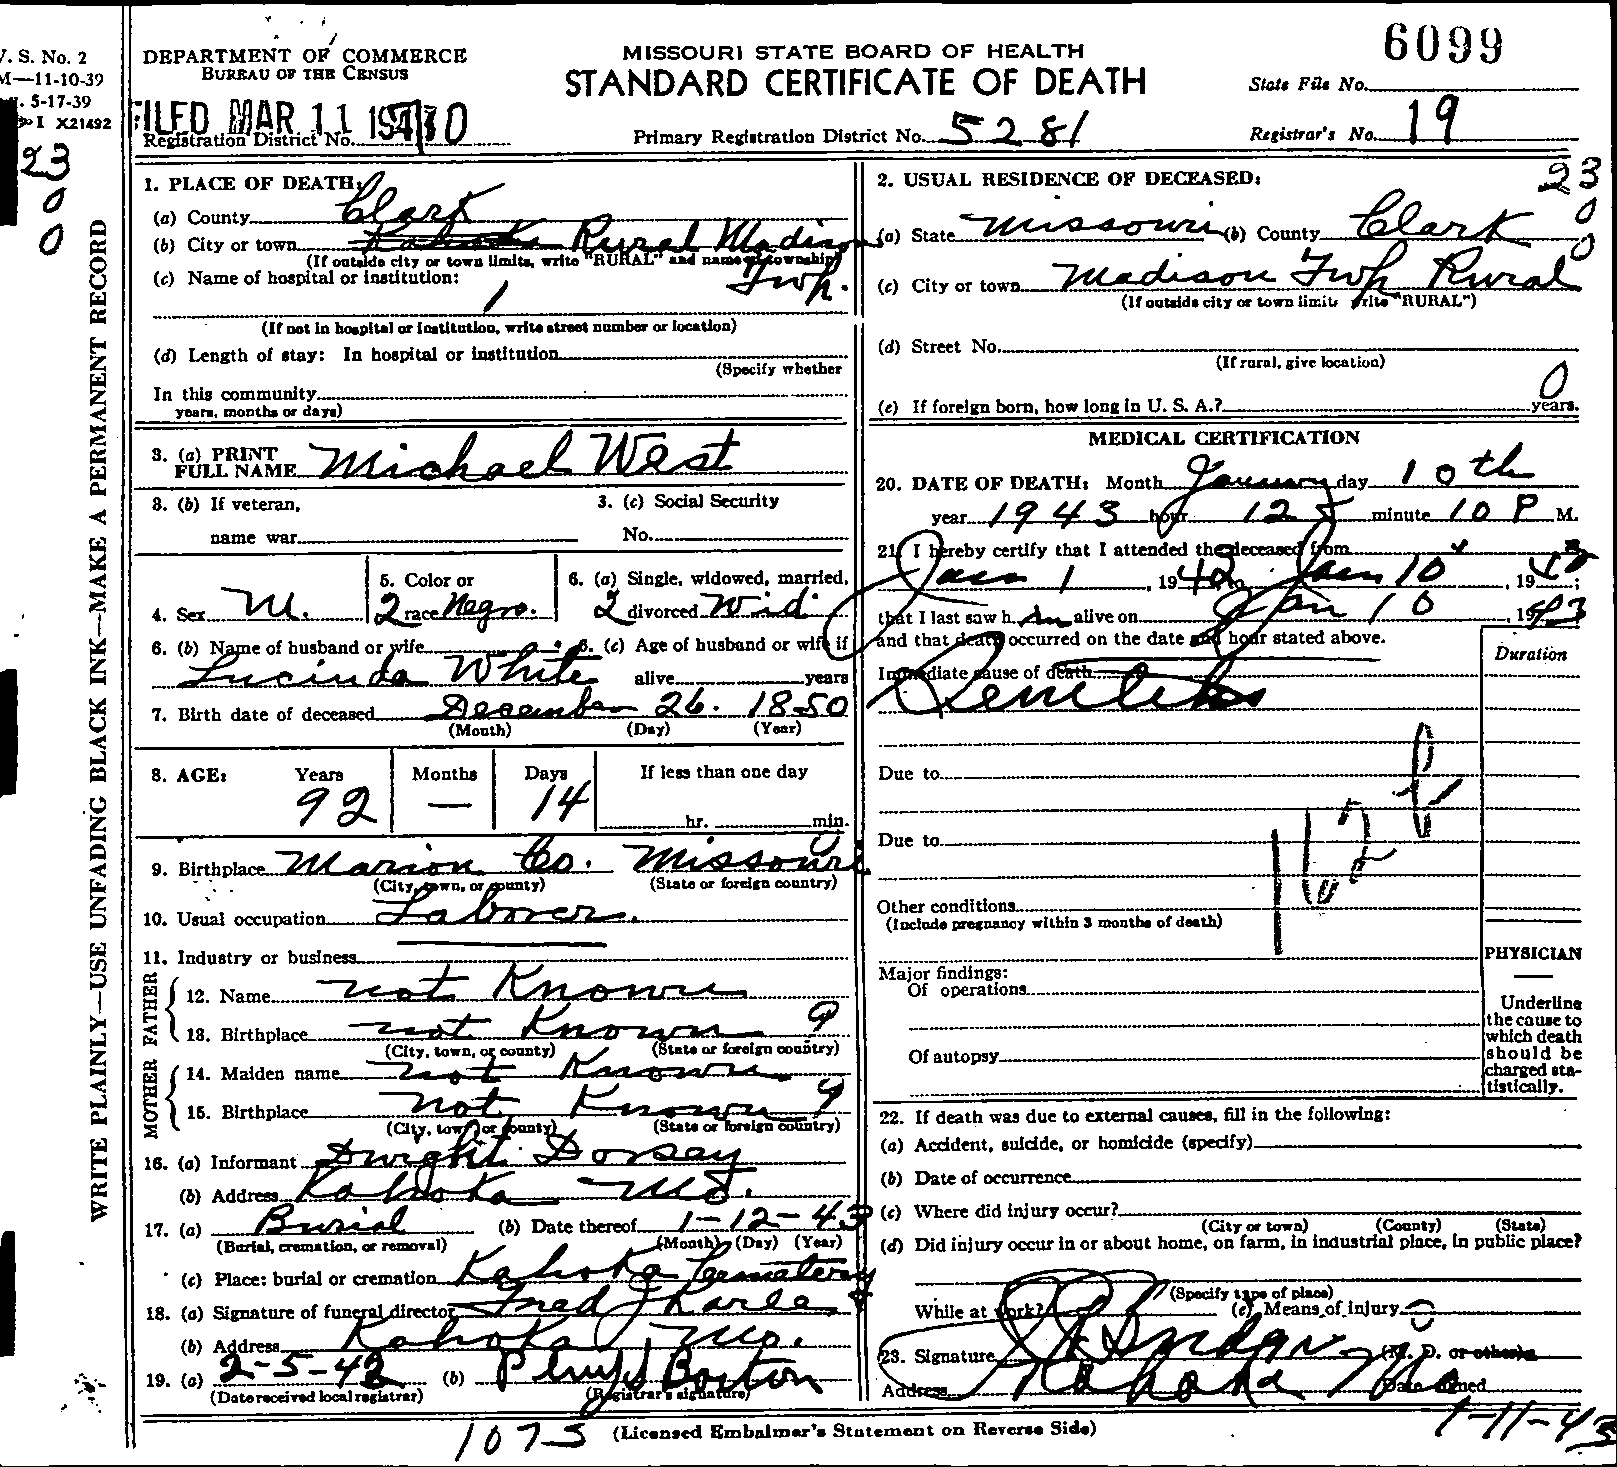 V. S. No. 2
M—11-10-39
5-17-39
I X21492
23
0
0
WRITE PLAINLY—USE UNFADING BLACK INK—MAKE A PERMANENT RECORD
DEPARTMENT OF COMMERCE
BUREAU OF THE CENSUS
FILED MAR 11
Registration District No. 70
MISSOURI STATE BOARD OF HEALTH
STANDARD CERTIFICATE OF DEATH
Primary Registration District No. 5281
6099
State File No.
Registrar's No. 19
1. PLACE OF DEATH:
(a) County Clark
(b) City or town Kahoka Rural Madison
(If outside city or town limits, write "RURAL" and name of township)
Twp.
(c) Name of hospital or institution:
1
(If not in hospital or institution, write street number or location)
(d) Length of stay: In hospital or institution
(Specify whether
In this community
years, months or days)
3. (a) PRINT FULL NAME Michael West
3. (b) If veteran,
name war
3. (c) Social Security
No.
4. Sex M.
5. Color or
2 race Negro.
6. (a) Single, widowed, married,
2 divorced Wid
6. (b) Name of husband or wife
Lucinda White
6. (c) Age of husband or wife if
alive years
7. Birth date of deceased December 26. 1850
(Month) (Day) (Year)
8. AGE: Years Months Days If less than one day
92 — 14 hr. min.
9. Birthplace Marion Co. Missouri
(City, town, or county) (State or foreign country)
10. Usual occupation Laborer.
11. Industry or business
FATHER
12. Name not Known
13. Birthplace not Known 9
(City, town, or county) (State or foreign country)
MOTHER
14. Maiden name not Known
15. Birthplace not Known 9
(City, town, or county) (State or foreign country)
16. (a) Informant Dwight Dorsey
(b) Address Kahoka Mo.
17. (a) Burial (b) Date thereof 1-12-43
(Burial, cremation, or removal) (Month) (Day) (Year)
(c) Place: burial or cremation Kahoka Cemetery
18. (a) Signature of funeral director Fred J Karle
(b) Address Kahoka Mo.
19. (a) 2-5-43 (b) Boston
(Date received local registrar) (Registrar's signature)
2. USUAL RESIDENCE OF DECEASED:
23
0
0
(a) State Missouri (b) County Clark
(c) City or town Madison Twp Rural
(If outside city or town limits write "RURAL")
(d) Street No.
(If rural, give location)
0
(e) If foreign born, how long in U. S. A.? years.
MEDICAL CERTIFICATION
20. DATE OF DEATH: Month January day 10th
year 1943 hour 12 minute 10 P M.
21. I hereby certify that I attended the deceased from
Jan 1, 1942 to Jan 10, 19
that I last saw h im alive on Jan 10 1943
and that death occurred on the date and hour stated above.
Duration
Immediate cause of death
Due to
Due to
162
Other conditions
(Include pregnancy within 3 months of death)
PHYSICIAN
Major findings:
Of operations
Of autopsy
Underline
the cause to
which death
should be
charged sta-
tistically.
22. If death was due to external causes, fill in the following:
(a) Accident, suicide, or homicide (specify)
(b) Date of occurrence
(c) Where did injury occur?
(City or town) (County) (State)
(d) Did injury occur in or about home, on farm, in industrial place, in public place?
(Specify type of place)
While at work? (e) Means of injury
23. Signature (M. D. or other)
Address Kahoka Mo Date signed
1-11-43
1075
(Licensed Embalmer's Statement on Reverse Side)